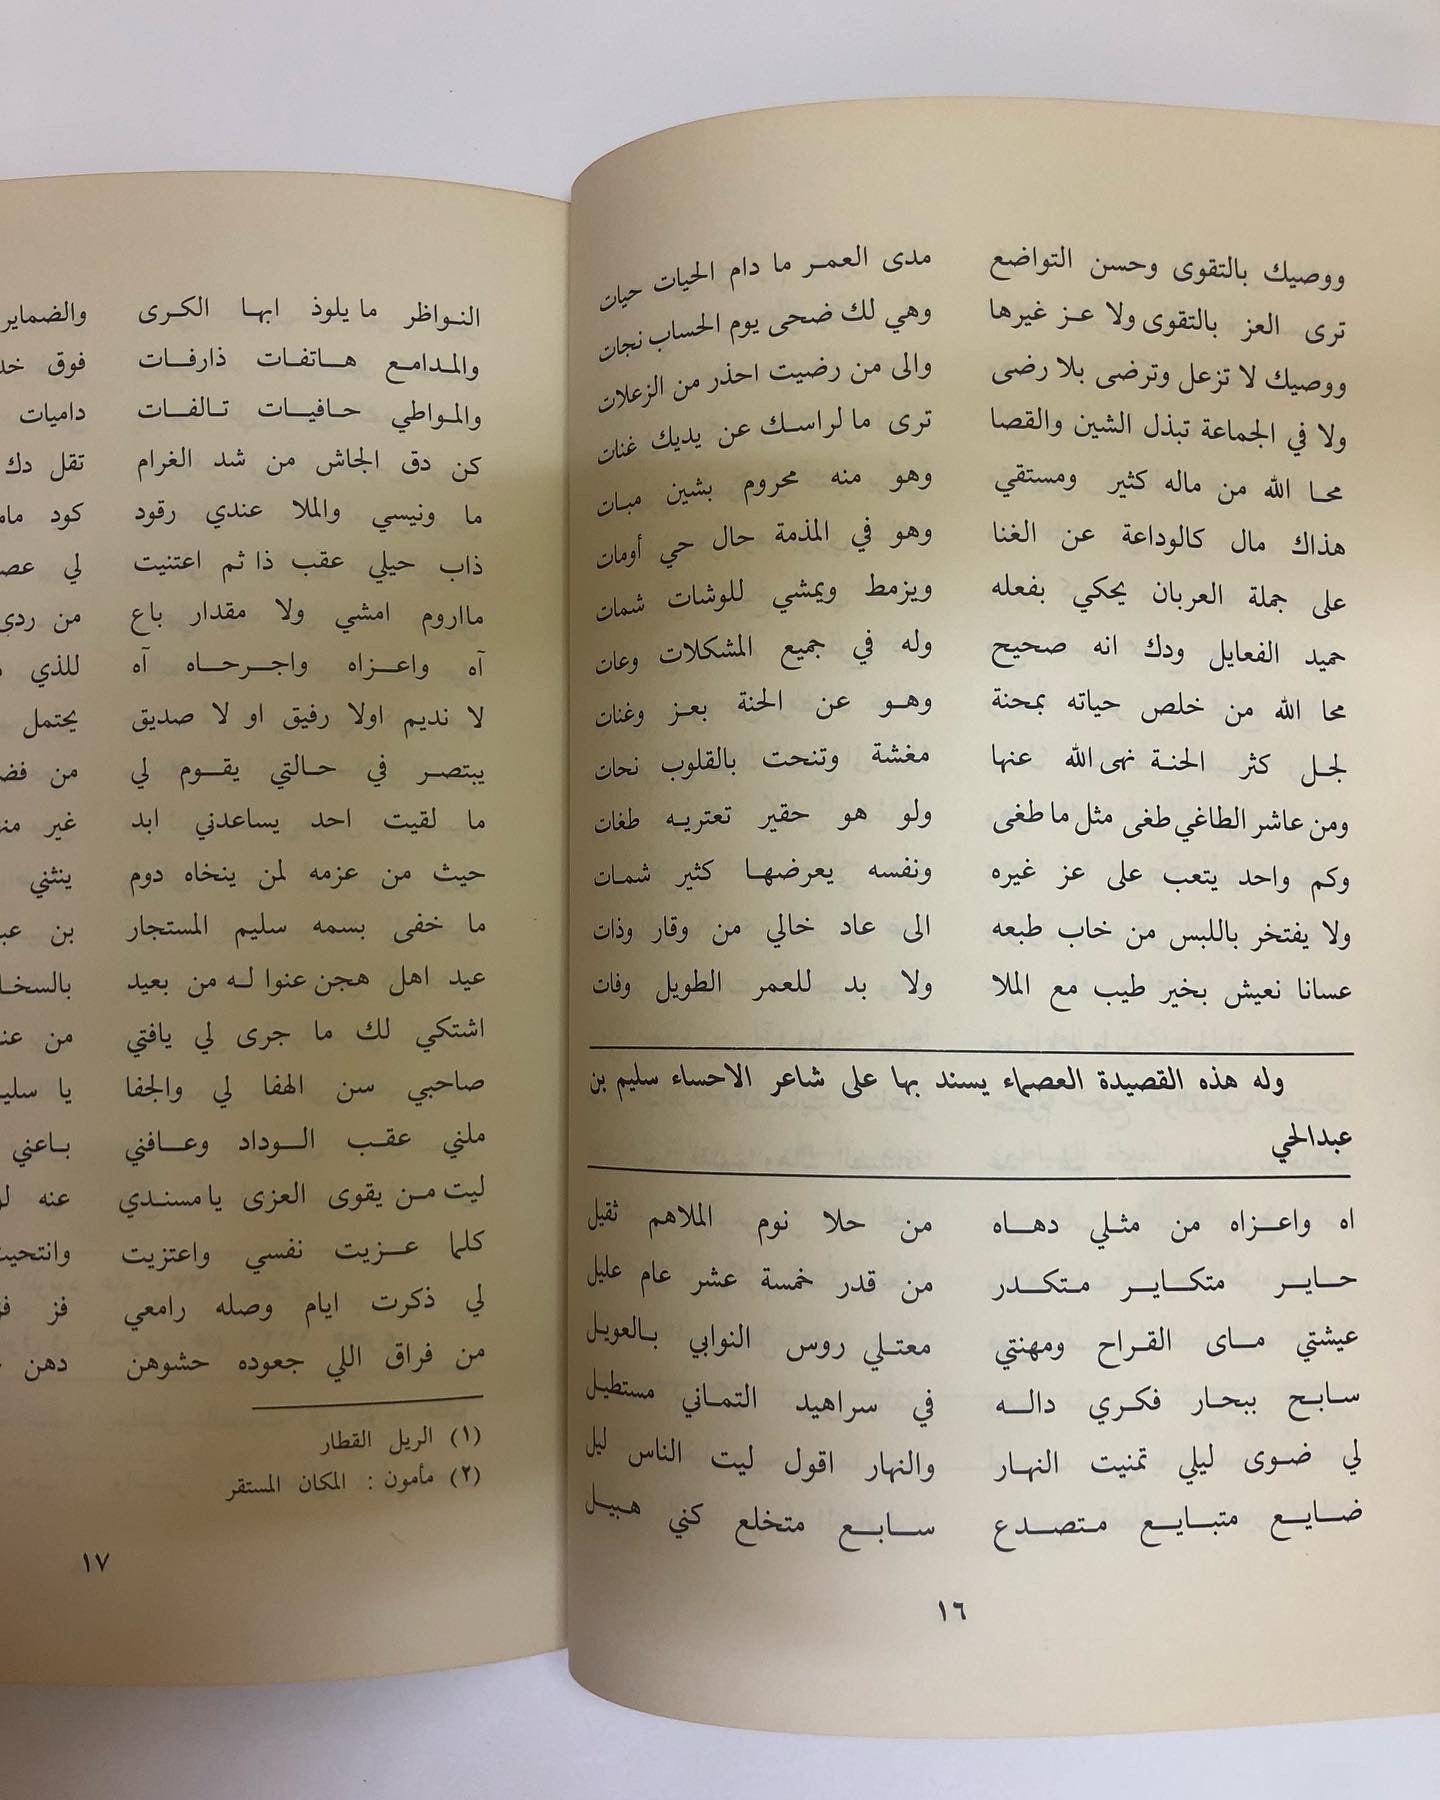 ووصيك بالتقوى وحسن التواضع مدى العمر ما دام الحيات حيات
ترى العز بالتقوى ولا عز غيرها وهي لك ضحى يوم الحساب نجات
ووصيك لا تزعل وترضى بلا رضى والى من رضيت احذر من الزعلات
ولا في الجماعة تبذل الشين والقصا ترى ما لراسك عن يديك غنات
محا الله من ماله كثير ومستقي وهو منه محروم بشين مبات
هذاك مال كالوداعة عن الغنا وهو في المذمة حال حي أومات
على جملة العربان يحكي بفعله ويزمط ويمشي للوشات شمات
حميد الفعايل ودك انه صحيح وله في جميع المشكلات وعات
محا الله من خلص حياته بمحنة وهو عن الحنة بعز وغنات
لجل كثر الحنة نهى الله عنها مغشة وتنحت بالقلوب نحات
ومن عاشر الطاغي طغى مثل ما طغى ولو هو حقير تعتريه طغات
وكم واحد يتعب على عز غيره ونفسه يعرضها كثير شمات
ولا يفتخر باللبس من خاب طبعه الى عاد خالي من وقار وذات
عسانا نعيش بخير طيب مع الملا ولا بد للعمر الطويل وفات
وله هذه القصيدة العصماء يسند بها على شاعر الاحساء سليم بن
عبدالحي
اه واعزاه من مثلي دهاه من حلا نوم الملاهم ثقيل
حاير متكاير متكدر من قدر خمسة عشر عام عليل
عيشتي ماى القراح ومهنتي معتلي روس النوابي بالعويل
سابح ببحار فكري داله في سراهيد التماني مستطيل
لي ضوى ليلي تمنيت النهار والنهار اقول ليت الناس ليل
ضايع متبايع متصدع سابع متخلع كني هبيل
١٦
النواظر ما يلوذ ابها الكرى والضماير
والمدامع هاتفات ذارفات فوق
والمواطي حافيات تالفات داميات
كن دق الجاش من شد الغرام تقل دك
ما ونيسي والملا عندي رقود كود
ذاب حيلي عقب ذا ثم اعتنيت لي
مااروم امشي ولا مقدار باع من ردى
آه واعزاه واجرحاه آه للذي
لا نديم اولا رفيق او لا صديق يحتمل
يبتصر في حالتي يقوم لي من
ما لقيت احد يساعدني ابد غير
حيث من عزمه لمن ينخاه دوم ينثني
ما خفى بسمه سليم المستجار بن
عيد اهل هجن عنوا له من بعيد
اشتكي لك ما جرى لي يافتي من
صاحبي سن الهفا لي والجفا يا
ملني عقب الوداد وعافني باعني
ليت من يقوى العزى يا مسندي عنه
كلما عزيت نفسي واعتزيت
لي ذكرت ايام وصله رامعي فز
من فراق اللي جعوده حشوهن دهن
(١) الريل القطار
(٢) مأمون : المكان المستقر
١٧